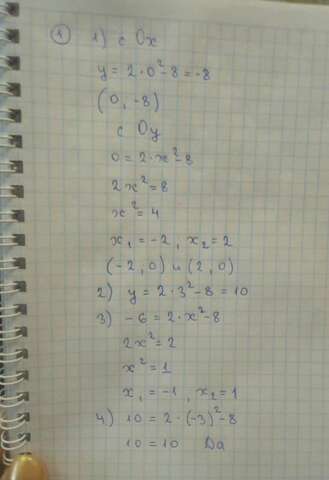 ① 1) с Ox
y = 2·0²-8 = -8
(0, -8)
с Oy
0 = 2·x²-8
2x² = 8
x² = 4
x₁ = -2, x₂ = 2
(-2, 0) и (2, 0)
2) y = 2·3²-8 = 10
3) -6 = 2·x²-8
2x² = 2
x² = 1
x₁ = -1, x₂ = 1
4) 10 = 2·(-3)²-8
10 = 10 Da